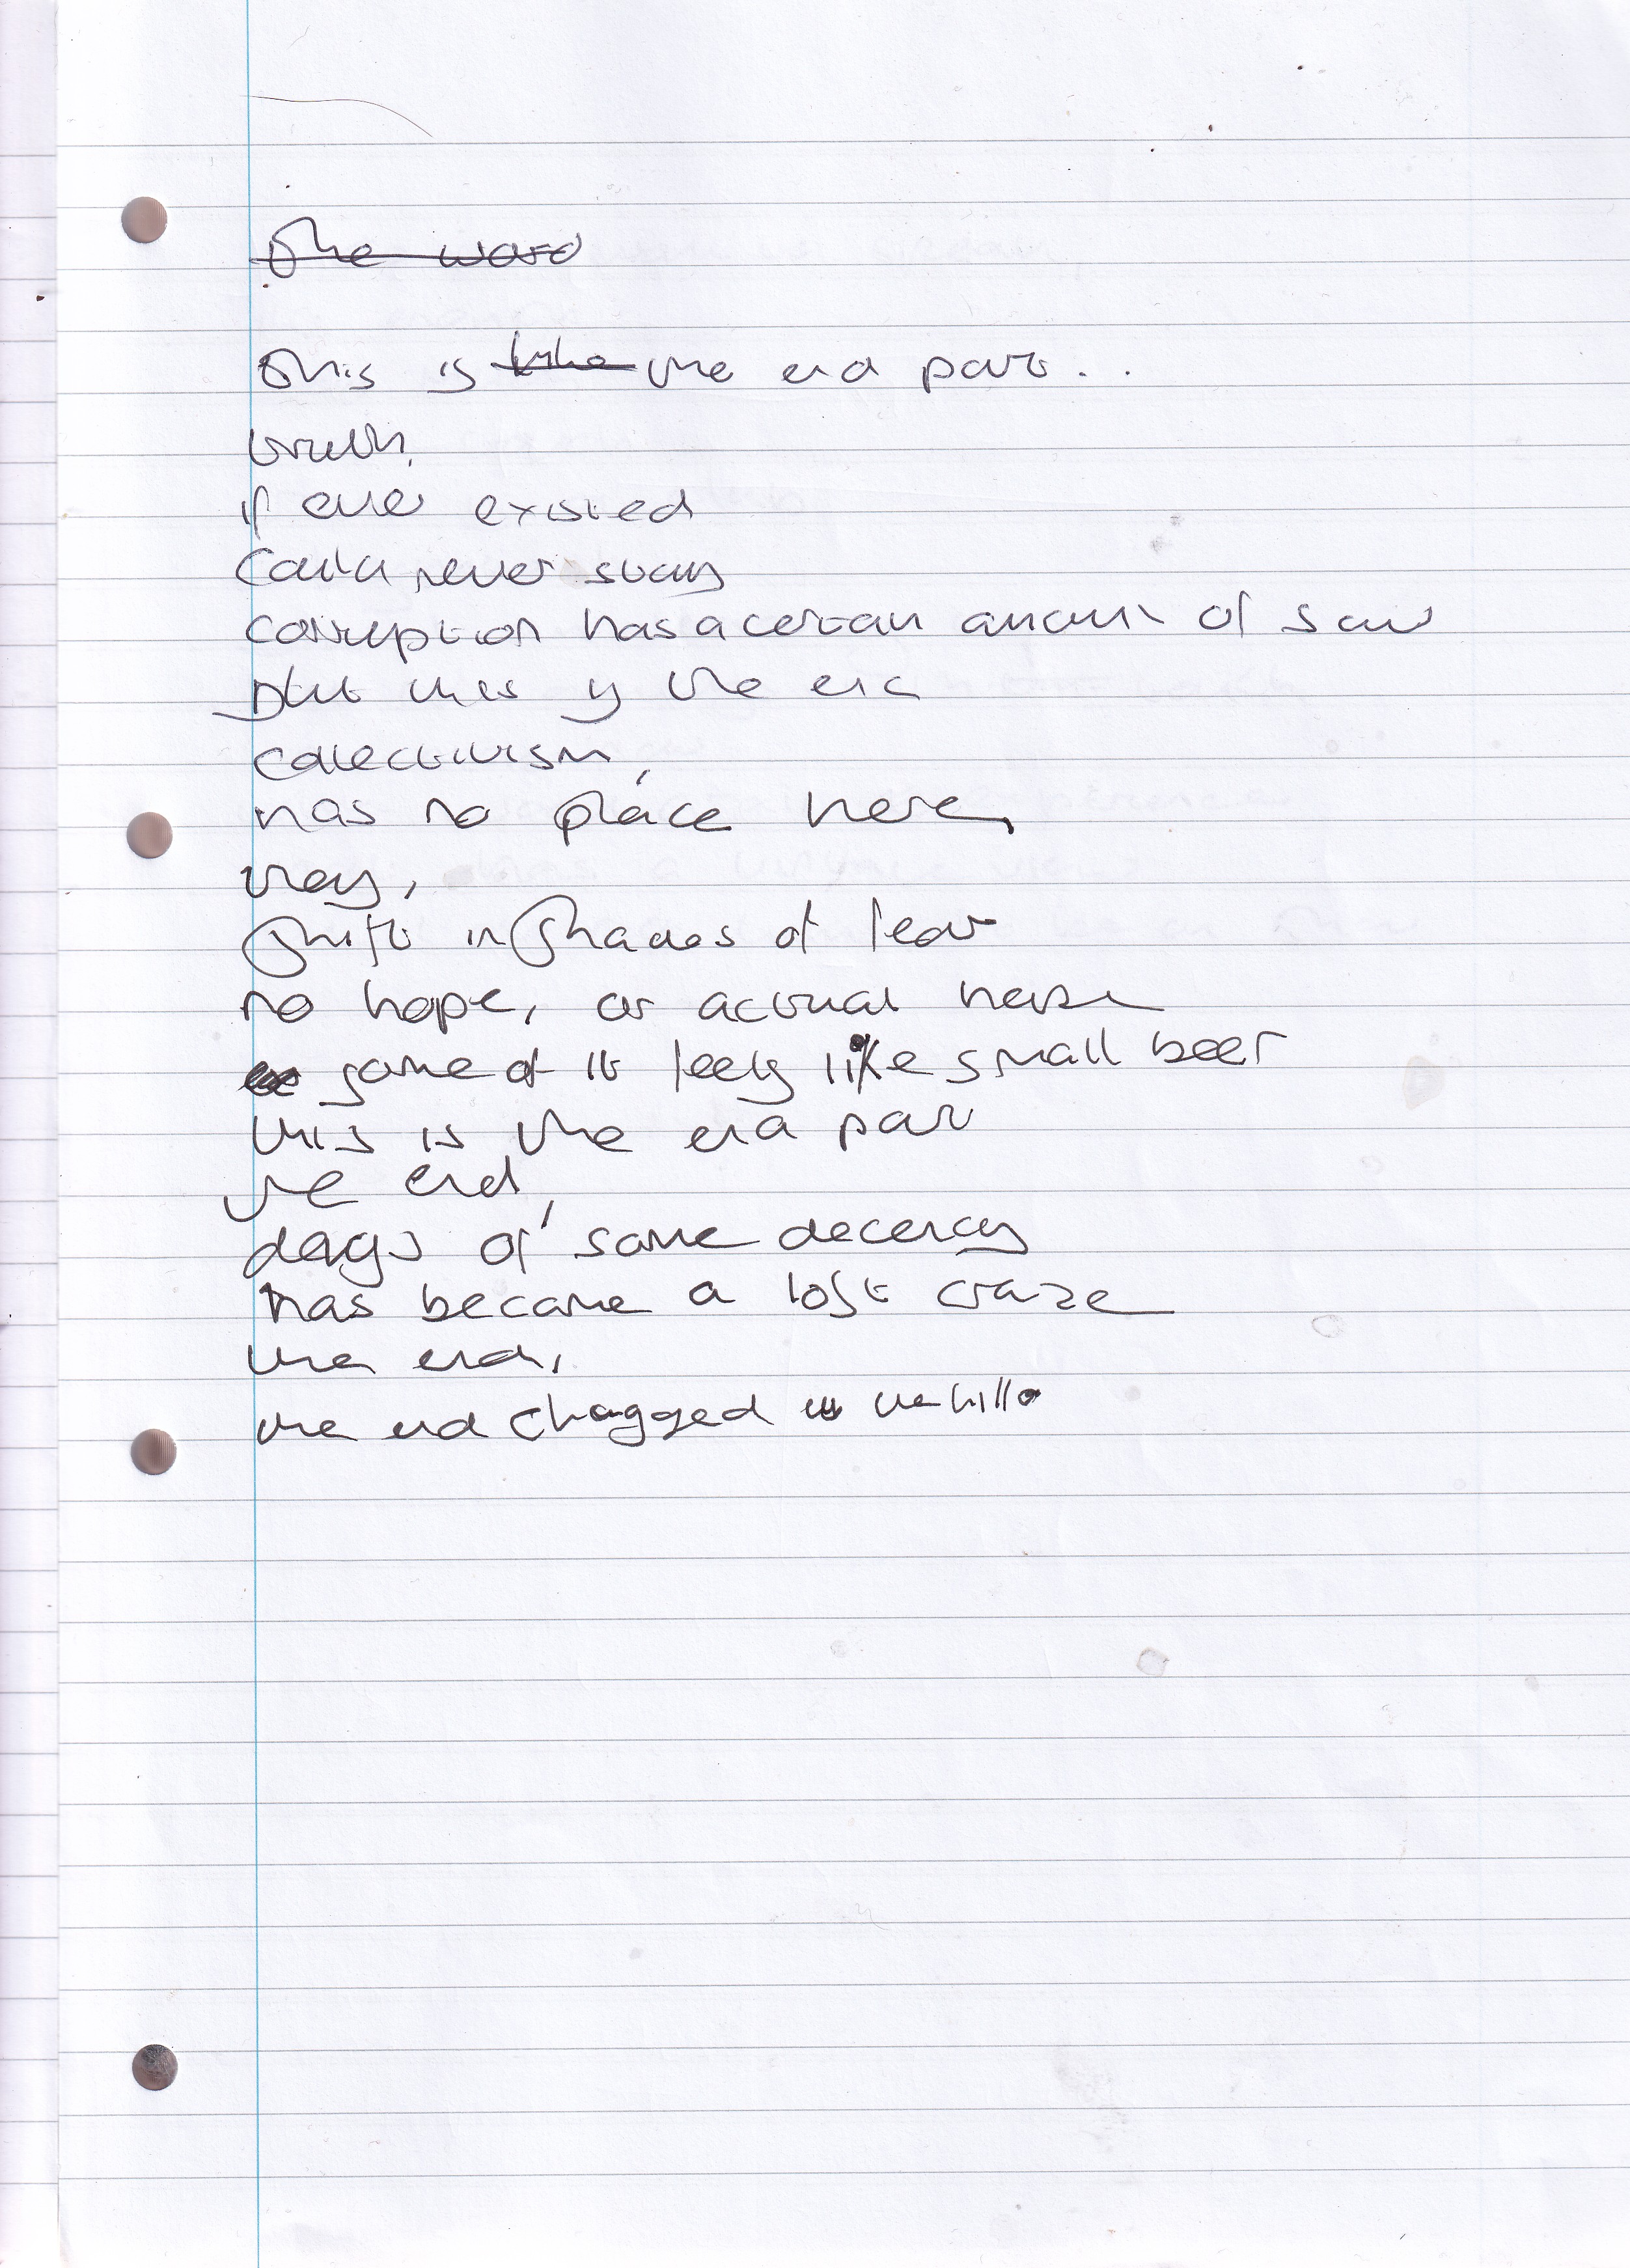 The word
This is the end part..
truth,
if ever existed
Could never stay
corruption has a certain amount of
but this is the end
collectivism,
has no place here,
they,
Shift in Shades of fear
no hope, or actual
some of it feels like small beer
this is the end part
the end,
days of some decency
has become a lost craze
the end,
the end